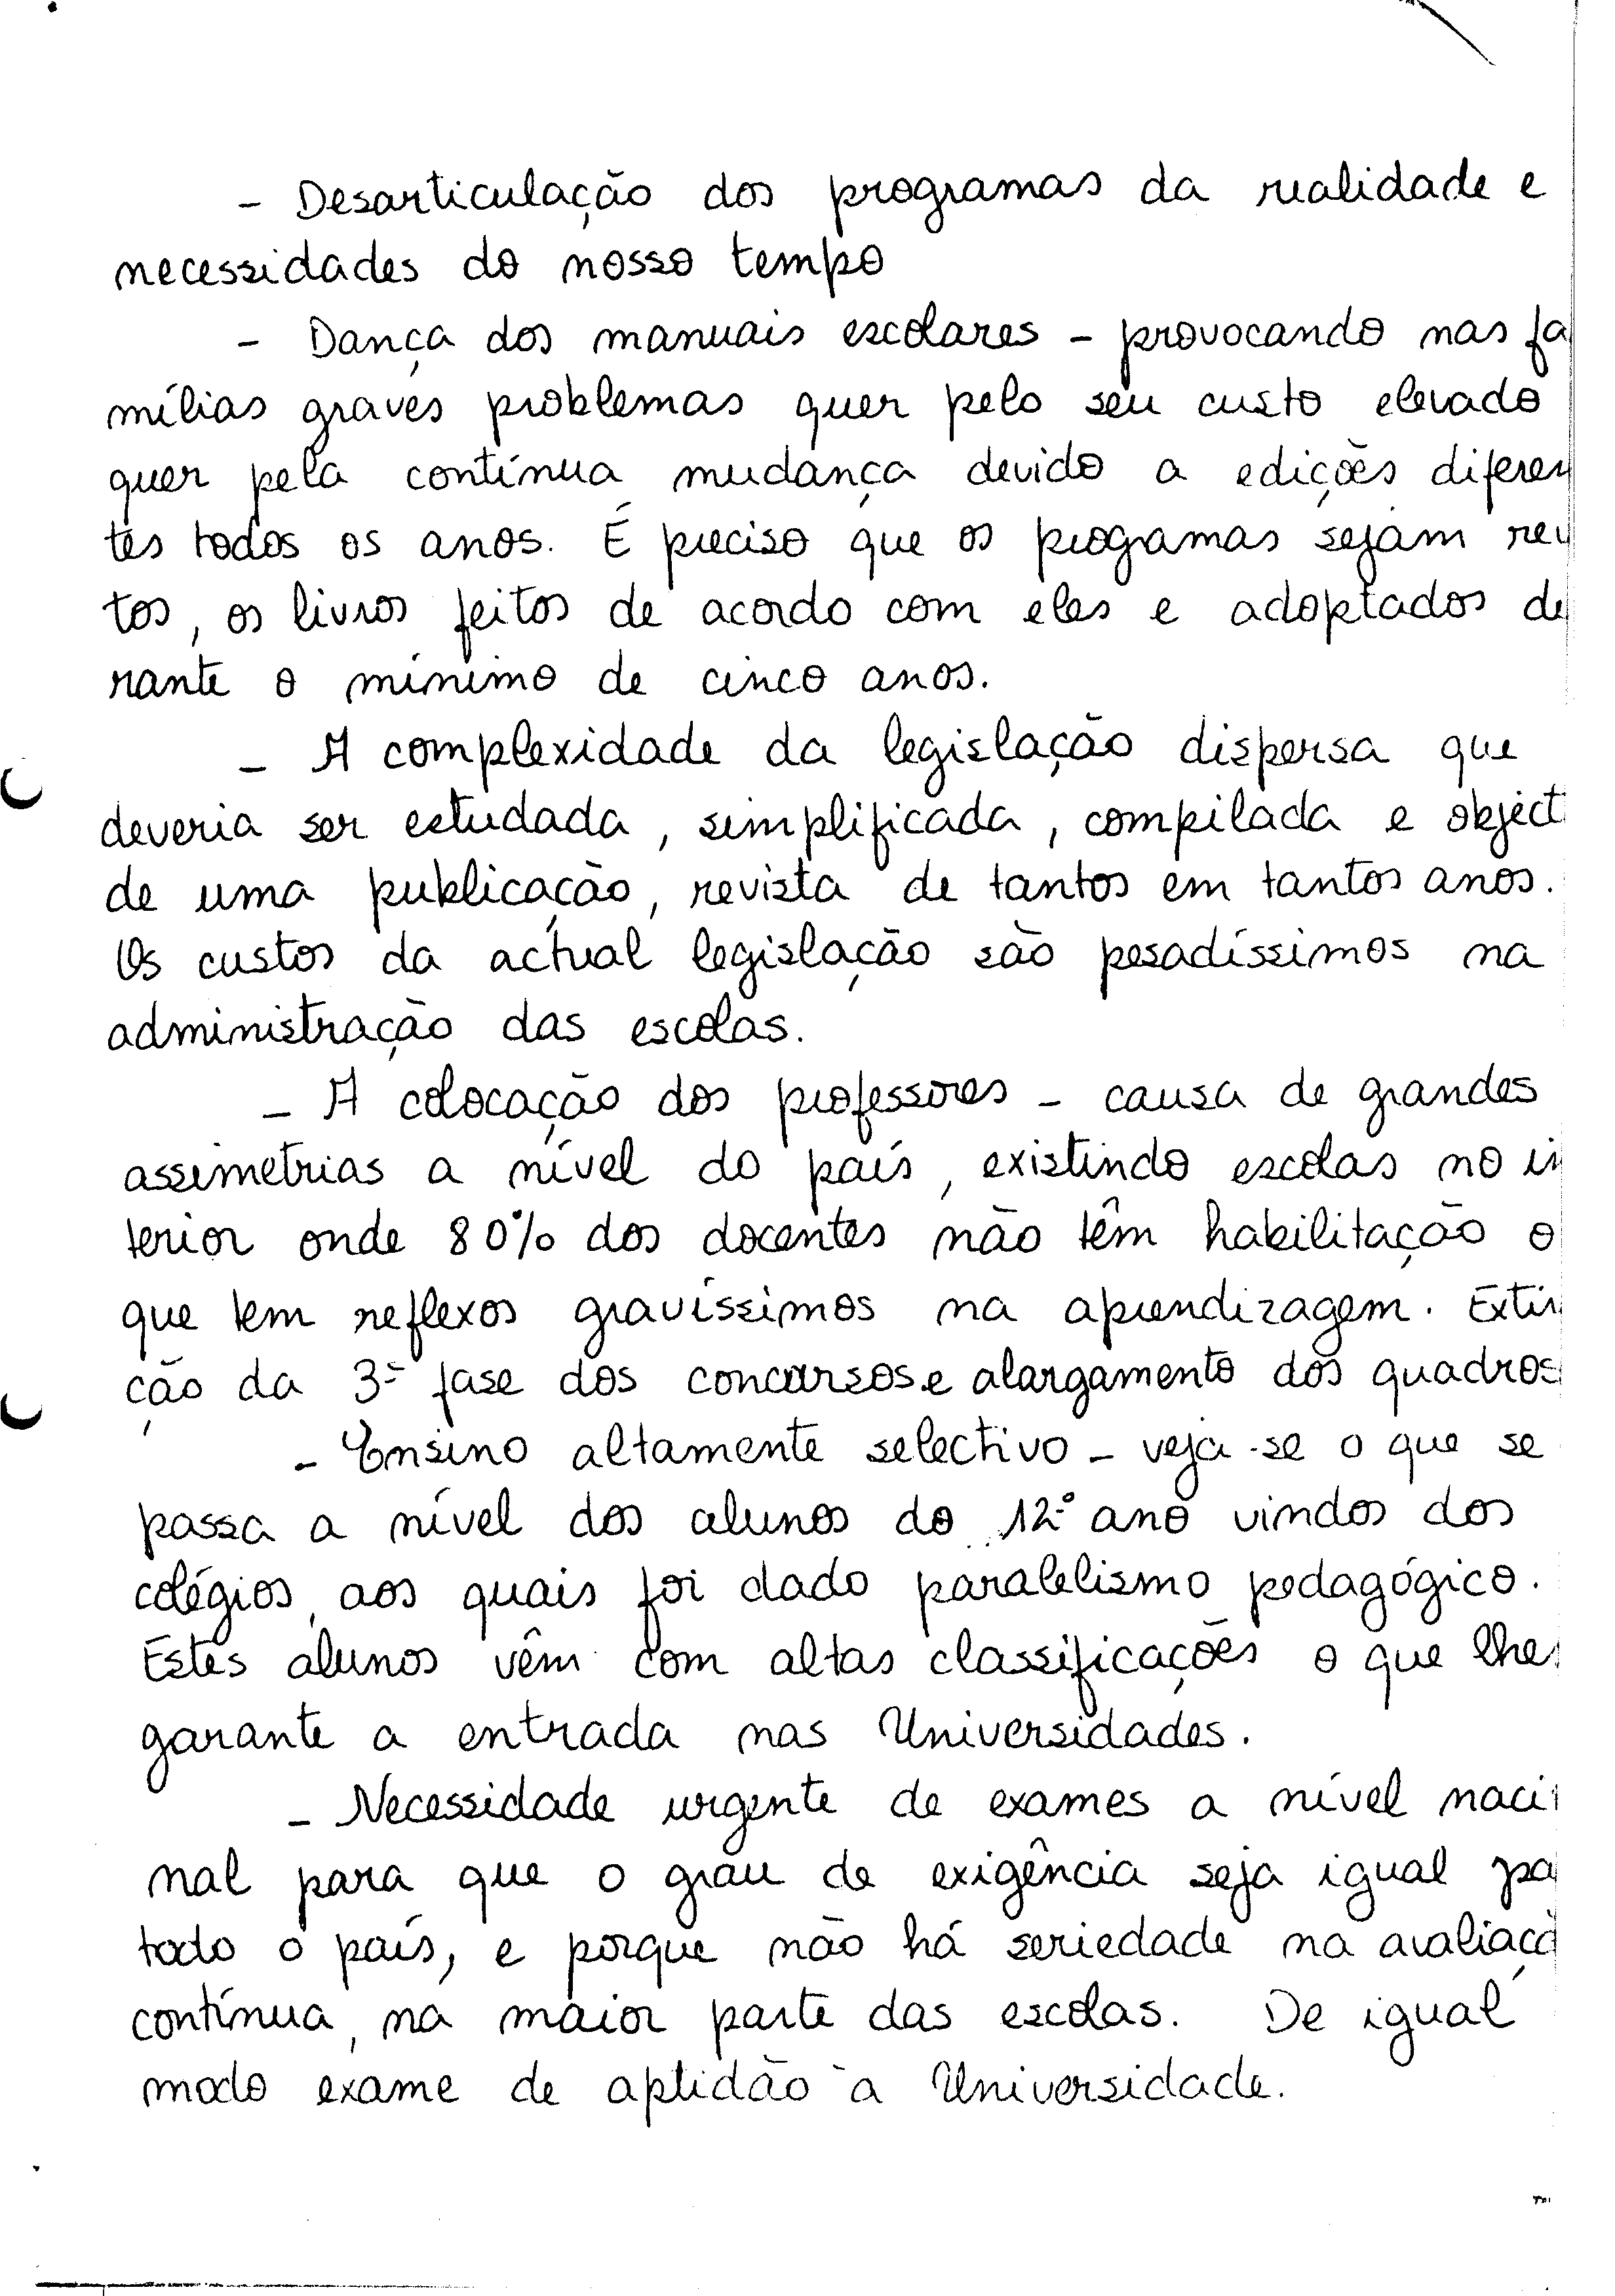 - Desarticulação dos programas da realidade e
necessidades do nosso tempo
- Dança dos manuais escolares - provocando nas fa
mílias graves problemas quer pelo seu custo elevado
quer pela contínua mudança devido a edições diferen
tes todos os anos. É preciso que os programas sejam revi
tos, os livros feitos de acordo com eles e adoptados du
rante o mínimo de cinco anos.
- A complexidade da legislação dispersa que
deveria ser estudada, simplificada, compilada e object
de uma publicação, revista de tantos em tantos anos.
Os custos da actual legislação são pesadíssimos na
administração das escolas.
- A colocação dos professores - causa de grandes
assimetrias a nível do país, existindo escolas no in
terior onde 80% dos docentes não têm habilitação o
que tem reflexos gravíssimos na aprendizagem. Extin
ção da 3ª fase dos concursos e alargamento dos quadros
- Ensino altamente selectivo - veja-se o que se
passa a nível dos alunos do 12º ano vindos dos
colégios, aos quais foi dado paralelismo pedagógico.
Estes alunos vêm com altas classificações o que lhes
garante a entrada nas Universidades.
- Necessidade urgente de exames a nível naci
nal para que o grau de exigência seja igual pa
todo o país, e porque não há seriedade na avaliaçã
contínua, na maior parte das escolas. De igual
modo exame de aptidão à Universidade.